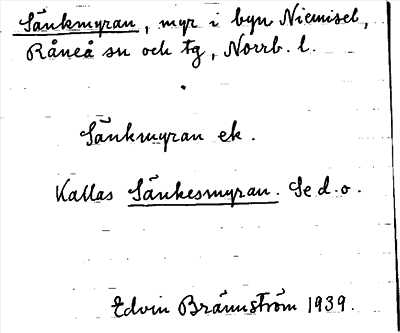 Sänkmyran, myr i byn Niemisel,
Råneå sn och tg, Norrb. l.
Sänkmyran ek.
Kallas Sänkesmyran. Se d.o.
Edvin Brännström 1939.